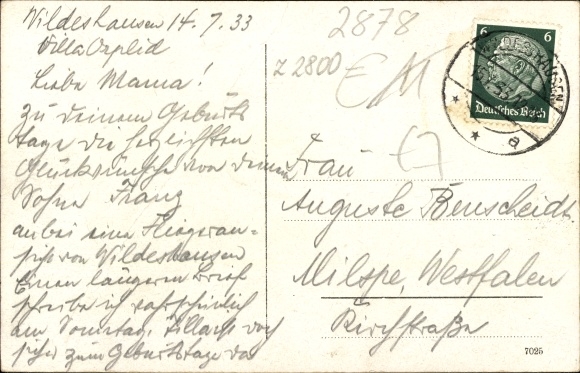 Wildeshausen 14.7.33
Villa Orplid
Liebe Mama!
Zu deinem Geburts
tage die herzlichsten
Glückwünsche von deinem
Sohne Franz
anbei eine Fliegeran=
sicht von Wildeshausen
Einen längeren Brief
schreibe ich wahrscheinlich
am Sonntag. Vielleicht doch
sicher zum Geburtstage da
2878
Z 2800
6 6
Deutsches Reich
WILDESHAUSEN
a
Frau
Auguste Benscheidt
Milspe, Westfalen
Kirchstraße
7025